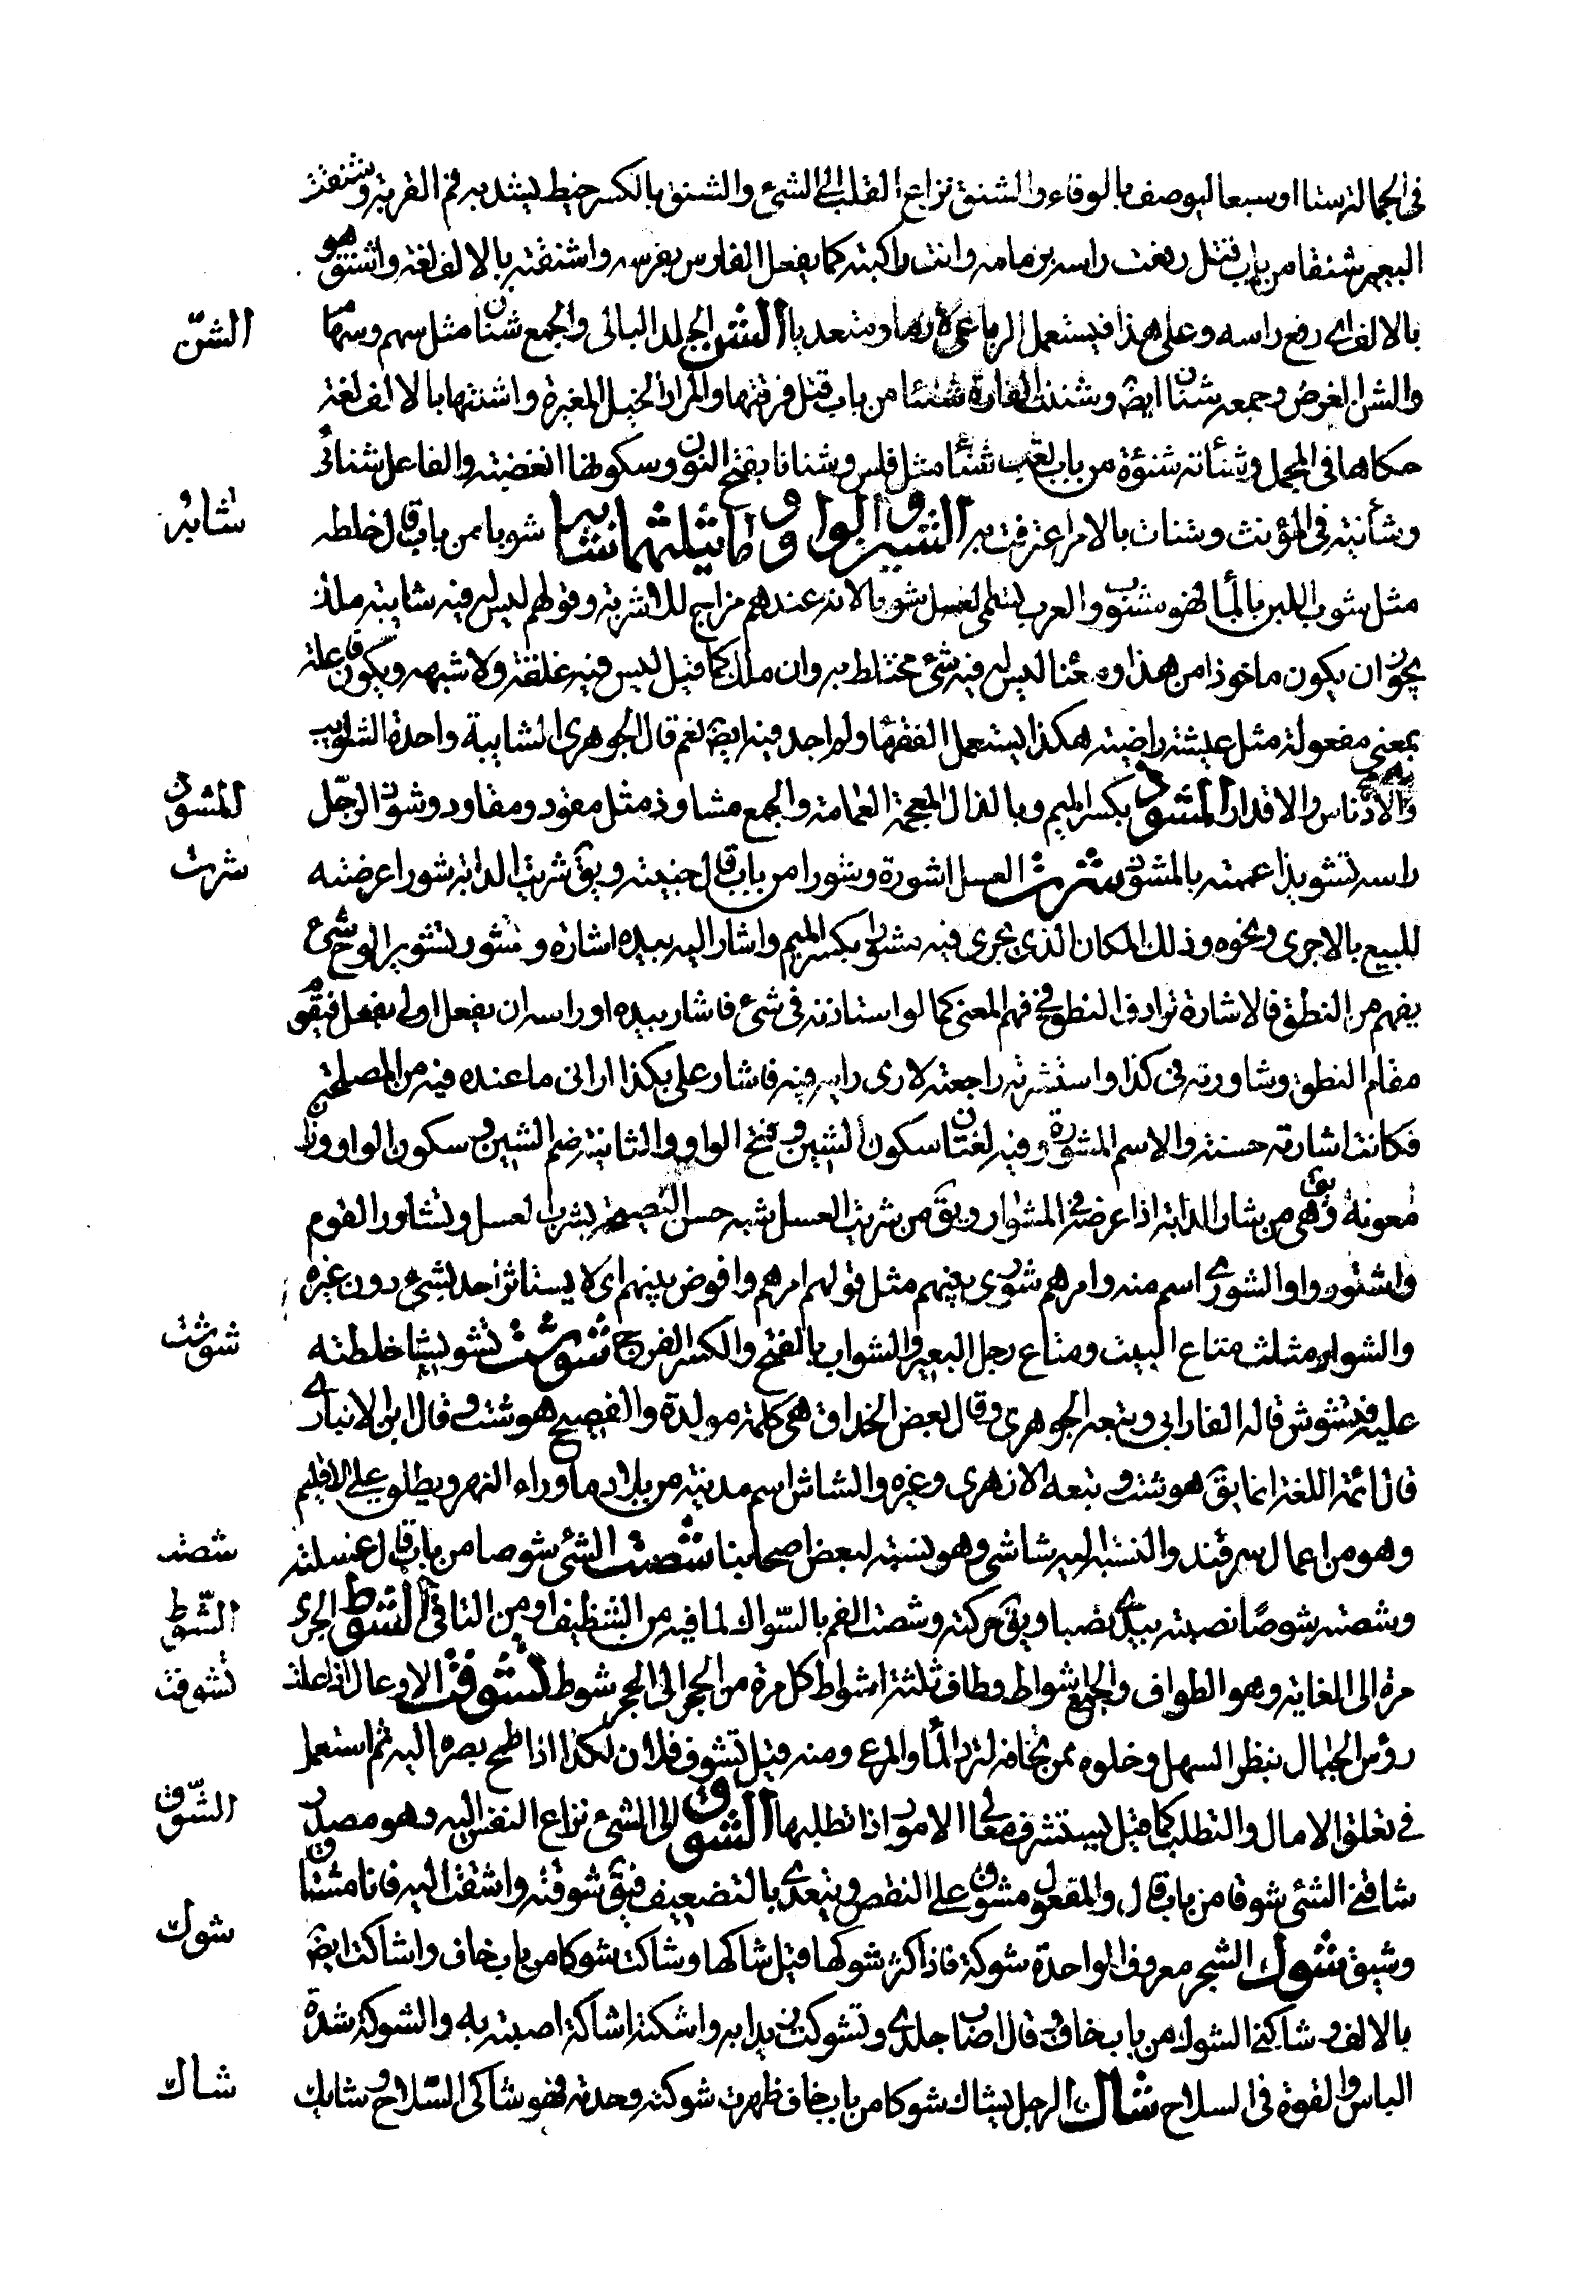 في الحمالة ستا او سبعا ليوصف بالوفاء والشنق نزاع القلب الى الشئ والشنق بالكسر خيط يشد به فم القربة وشنقت
البعير شنقا من باب قتل رفعت راسه بزمامه وانت راكبه كما يفعل الفارس بفرسه واشنقته بالالف لغة واشنق هو
بالالف اي رفع راسه وعلى هذا فيستعمل الرباعي لازما ومتعديا الشن الجلد البالي والجمع شنان مثل سهم وسهام
الشنّ
والشن الغرض وجمعه شنان ايضا وشننت الغارة شنا من باب قتل فرقتها والمراد الخيل المغيرة واشننتها بالالف لغة
حكاها في المجمل وشنأته شنؤه من باب تعب شنأ مثل فلس وشنانا بفتح النون وسكونها ابغضته والفاعل شانئ
وشأنية في المؤنث وشنات بالامر اعترفت به الشين والواو وما يثلثهما شابه شوبا من باب قال خلطه
شابه
مثل شوب اللبن بالماء فهو مشوب والعرب تسمى العسل شوبا لانه عندهم مزاج للاشربة وقولهم ليس فيه شايبة ملك
يجوز ان يكون ماخوذا من هذا ومعناه ليس فيه شئ مختلط به وان ملك كما قيل ليس فيه علقة ولا شبهه ويكون فاعلة
بمعنى مفعولة مثل عيشة راضية هكذا يستعمل الفقهاء ولم اجد فيه ايضا نعم قال الجوهري الشايبة واحدة الشوايب
وهي الادناس والاقدار المشوذ بكسر الميم وبالذال المعجمة العمامة والجمع مشاوذ مثل مقود ومقاود وشوذ الرجّل
المشوذ
راسه تشويذا عممته بالمشوذ شرت العسل اشوره شورا من باب قال جنيته ويق شرت الدابة شورا عرضته
شرت
للبيع بالاجرى ونحوه وذلك المكان الذي يجرى فيه مشوار بكسر الميم واشار اليه بيده اشارة وشور تشويرا لوح بشئ
يفهم من النطق فالاشارة ترادف النطق في فهم المعنى كما لو استاذنه في شئ فاشار بيده او راسه ان يفعل اولا يفعل فيقوم
مقام النطق وشاورته في كذا واستشرته راجعته لارى رايه فيه فاشار على بكذا ارانى ما عنده فيه من المصلحة
فكانت اشارته حسنة والاسم المشورة وفيه لغتان سكون الشين وفتح الواو والثانية ضم الشين وسكون الواو وزان
معونة ويق هي من شار الدابة اذا عرضه في المشوار ويق من شرت العسل شبه حسن النصيحة بشرب العسل وتشاور القوم
واشتوروا والشورى اسم منه وامرهم شورى بينهم مثل قولهم امرهم فوضى بينهم اى لا يستاثر احد بشئ دون غيره
والشوار مثلث متاع البيت ومتاع رحل البعير والشوار بالفتح والكسر الفرج شوشت تشويشا خلطته
شوشت
عليه فتشوش قاله الفارابي وتبعه الجوهري وقال بعض الحذاق هي كلمة مولدة والفصيح هوشت وقال ابن الانبارى
قال ائمة اللغة انما يق هوشت وتبعه الازهرى وغيره والشاش اسم مدينة من بلاد ماوراء النهر ويطلق على الاقليم
وهو من اعمال سمرقند والنسبة اليه شاشى وهو نسبة لبعض اصحابنا شصت الشئ شوصا من باب قال غسلته
شصت
وشصته شوصا نصبته بيدى نصبا ويق حركته وشصت الفم بالسّواك لما فيه من التنظيف او من التاقى الشوط الجرى
الشّوط
مرة الى الغاية وهو الطواف والجمع اشواط وطاف ثلثة اشواط كل مرة من الحجر الى الحجر شوط تشوفت الاوعال اذا علت
تشوفت
رؤس الجبال تنظر السهل وخلوه ممن تخافه لترد الماء والمرعى ومنه قيل تشوف فلان لكذا اذا طمح بصره اليه ثم استعمل
في تعلق الامال والتطلب كما قيل يستشرف معالى الامور اذا تطلبها الشوق الى الشئ نزاع النفس اليه وهو مصدر
الشّوق
شاقنى الشئ شوقا من باب قال والمفعول مشوق على النقص ويتعدى بالتضعيف فيق شوقته واشتقت اليه فانا مشتاق
وشيق شوك الشجر معروف الواحدة شوكة فاذا كثر شوكها قيل شاكها وشاكت شوكا من باب خاف واشاكت ايضا
شوك
بالالف وشاكنى الشوك من باب خاف قال اصاب جلدى وتشوكت يدا به واشكته اشاكة اصبته به والشوكة شدة
الباس والقوة في السلاح شاك الرجل يشاك شوكا من باب خاف ظهرت شوكته وحدته فهو شاكى السّلاح وشايك
شاك